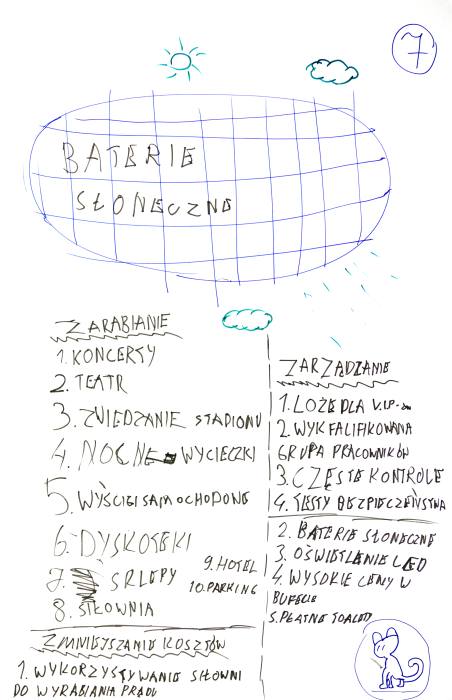 7
BATERIE
SŁONECZNE
ZARABIANIE
1. KONCERTY
2. TEATR
3. ZWIEDZANIE STADIONU
4. NOCNE WYCIECZKI
5. WYŚCIGI SAMOCHODONE
6. DYSKOTEKI
7. SKLEPY
8. SIŁOWNIA
9. HOTEL
10. PARKING
ZARZĄDZANIE
1. LOŻE DLA V.I.P-
2. WYKFALIFIKOWANA
GRUPA PRACOWNIKÓW
3. CZĘSTE KONTROLE
4. TESTY BEZPIECZEŃSTWA
ZMNIEJSZANIE KOSZTÓW
1. WYKORZYSTYWANIE SIŁOWNI
DO WYRABIANIA PRĄDU
2. BATERIE SŁONECZNE
3. OŚWIETLENIE LED
4. WYSOKIE CENY W
BUFECIE
5. PŁATNE TOALETY